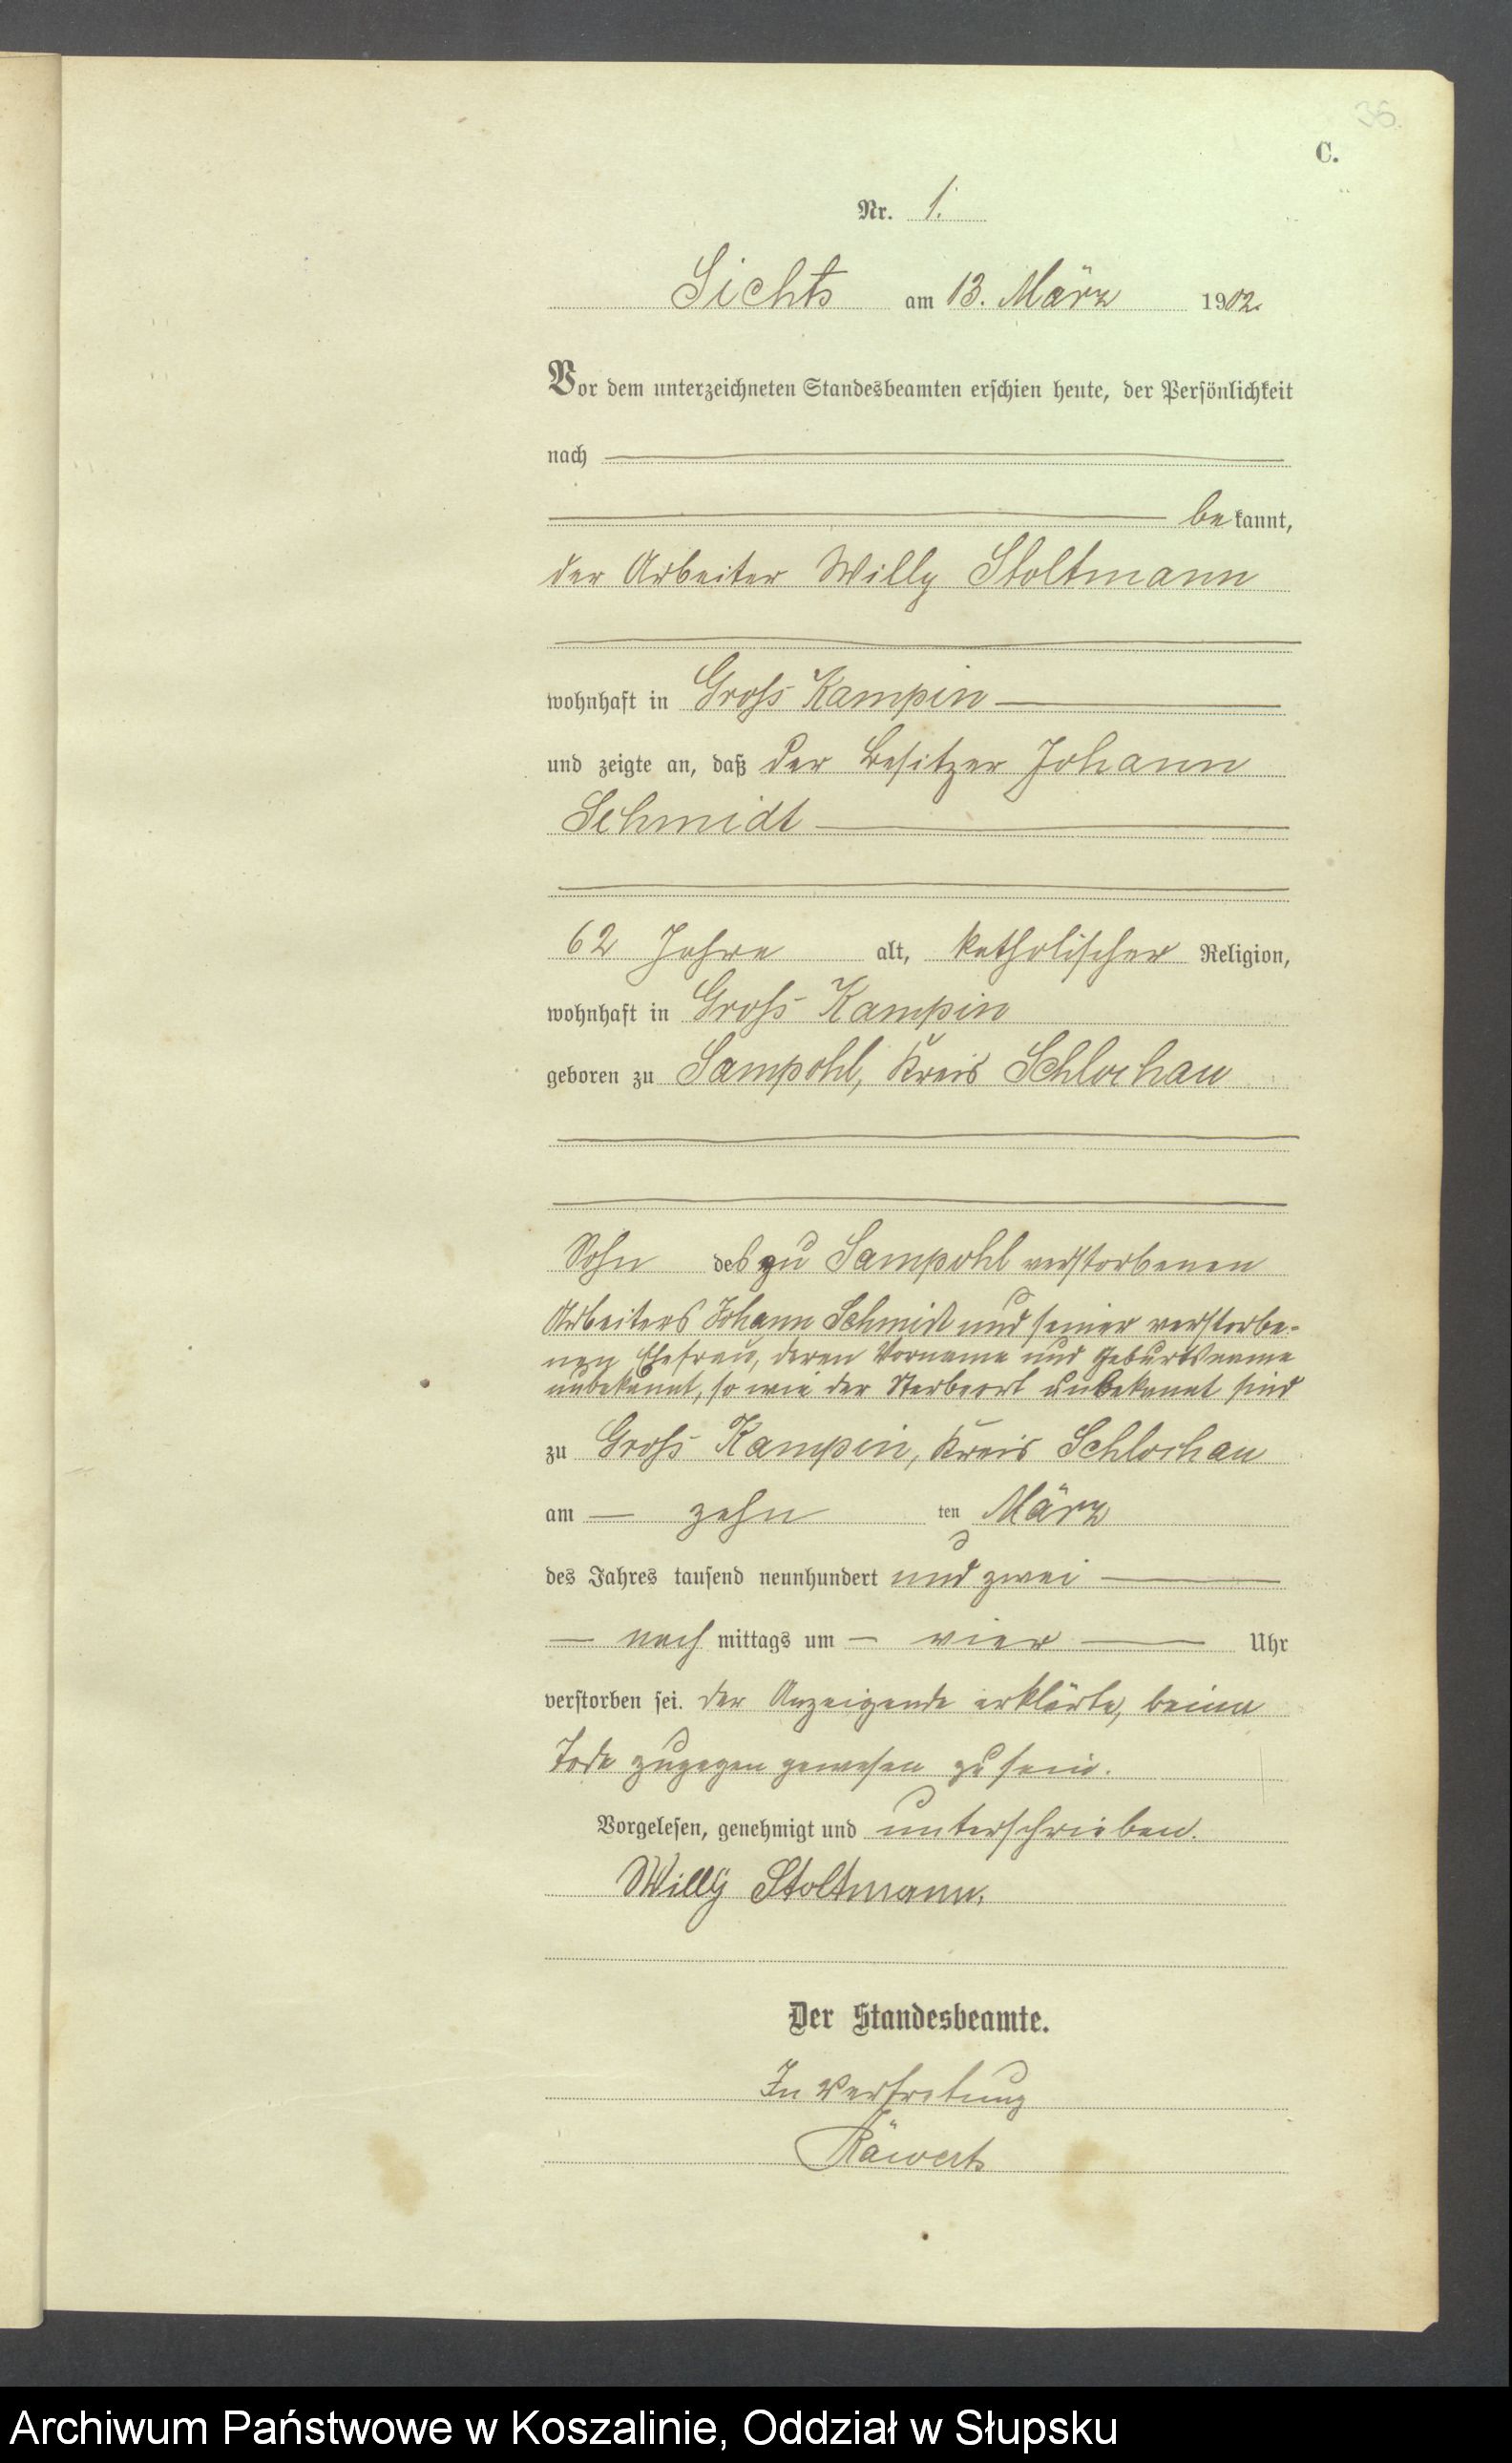 36.
C.
Nr. 1.
Sichts am 13. März 1902.
Vor dem unterzeichneten Standesbeamten erschien heute, der Persönlichkeit
nach
bekannt,
der Arbeiter Willy Stoltmann
wohnhaft in Gross Kampin
und zeigte an, daß der Besitzer Johann
Schmidt
62 Jahre alt, katholischer Religion,
wohnhaft in Gross Kampin
geboren zu Sampohl, Kreis Schlochau
Sohn des zu Sampohl verstorbenen
Arbeiters Johann Schmidt und seiner verstorbe-
nen Ehefrau, deren Vorname und Geburtsname
unbekannt, so wie der Sterbeort unbekannt sind
zu Gross Kampin, Kreis Schlochau
am zehn ten März
des Jahres tausend neunhundert und zwei
nach mittags um vier Uhr
verstorben sei. Der Anzeigende erklärte, beim
Tode zugegen gewesen zu sein.
Vorgelesen, genehmigt und unterschrieben.
Willy Stoltmann.
Der Standesbeamte.
In Vertretung
Räwert
Archiwum Państwowe w Koszalinie, Oddział w Słupsku